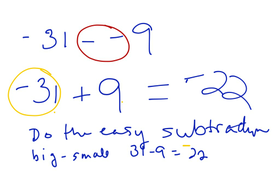 -31 - - 9
-31 + 9 = -22
Do the easy subtraction
big-small 31-9=22